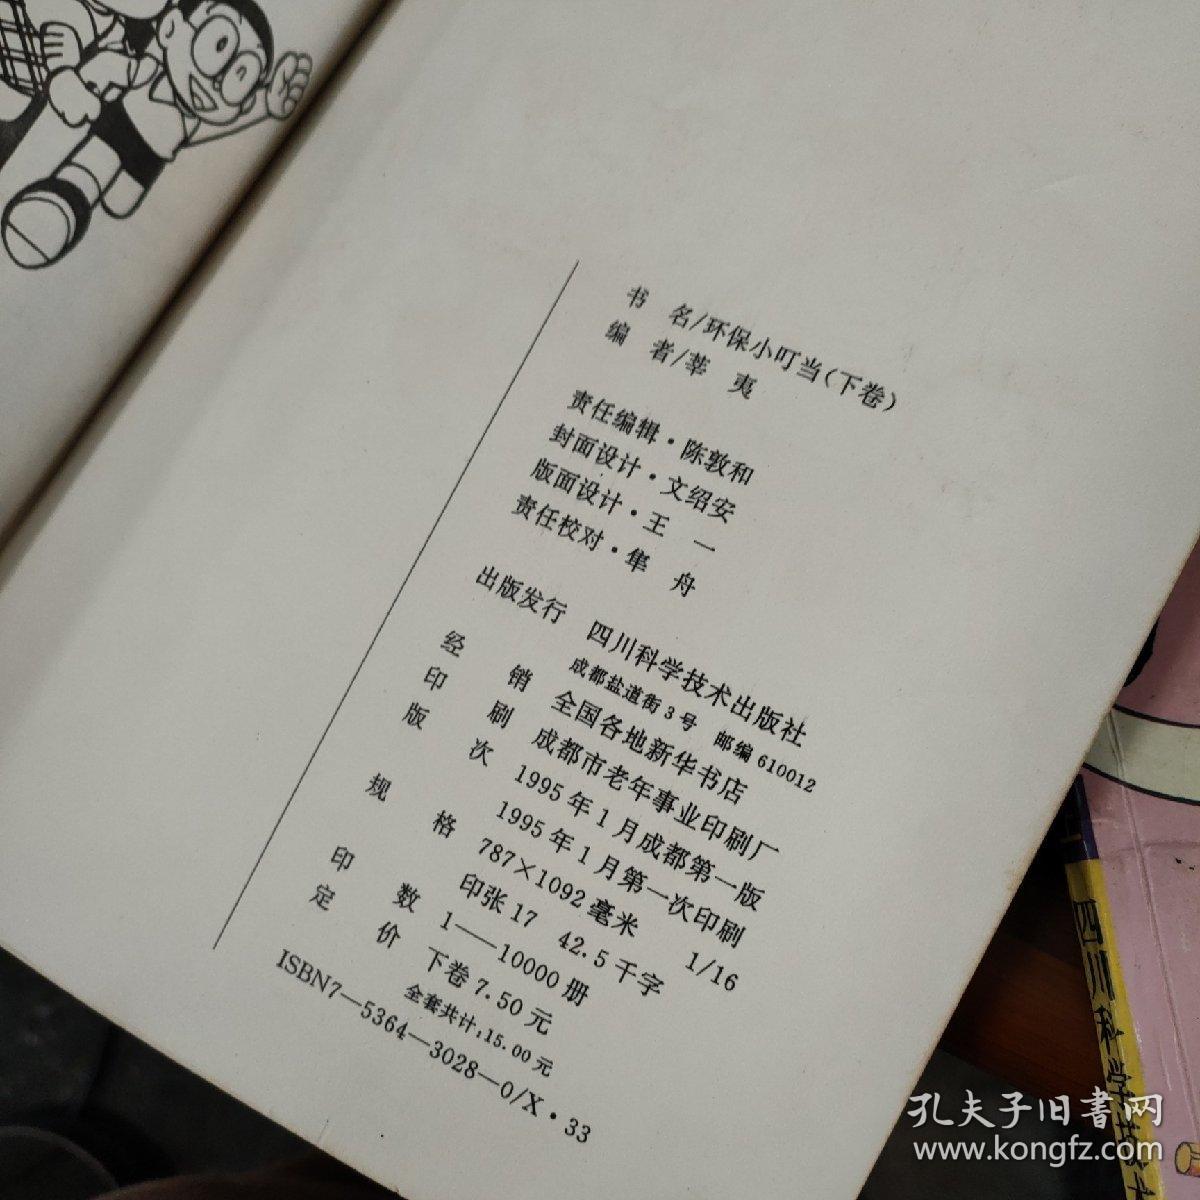 书　名/环保小叮当(下卷)
编　者/莘　夷
责任编辑·陈敦和
封面设计·文绍安
版面设计·王　一
责任校对·隼　舟
出版发行　四川科学技术出版社
成都盐道街3号　邮编610012
经　销　全国各地新华书店
印　刷　成都市老年事业印刷厂
版　次　1995年1月成都第一版
1995年1月第一次印刷
规　格　787×1092毫米　1/16
印张17　42.5千字
印　数　1—10000册
定　价　下卷7.50元
全套共计:15.00元
ISBN7—5364—3028—0/X·33
四川科学技术
孔夫子旧书网
www.kongfz.com